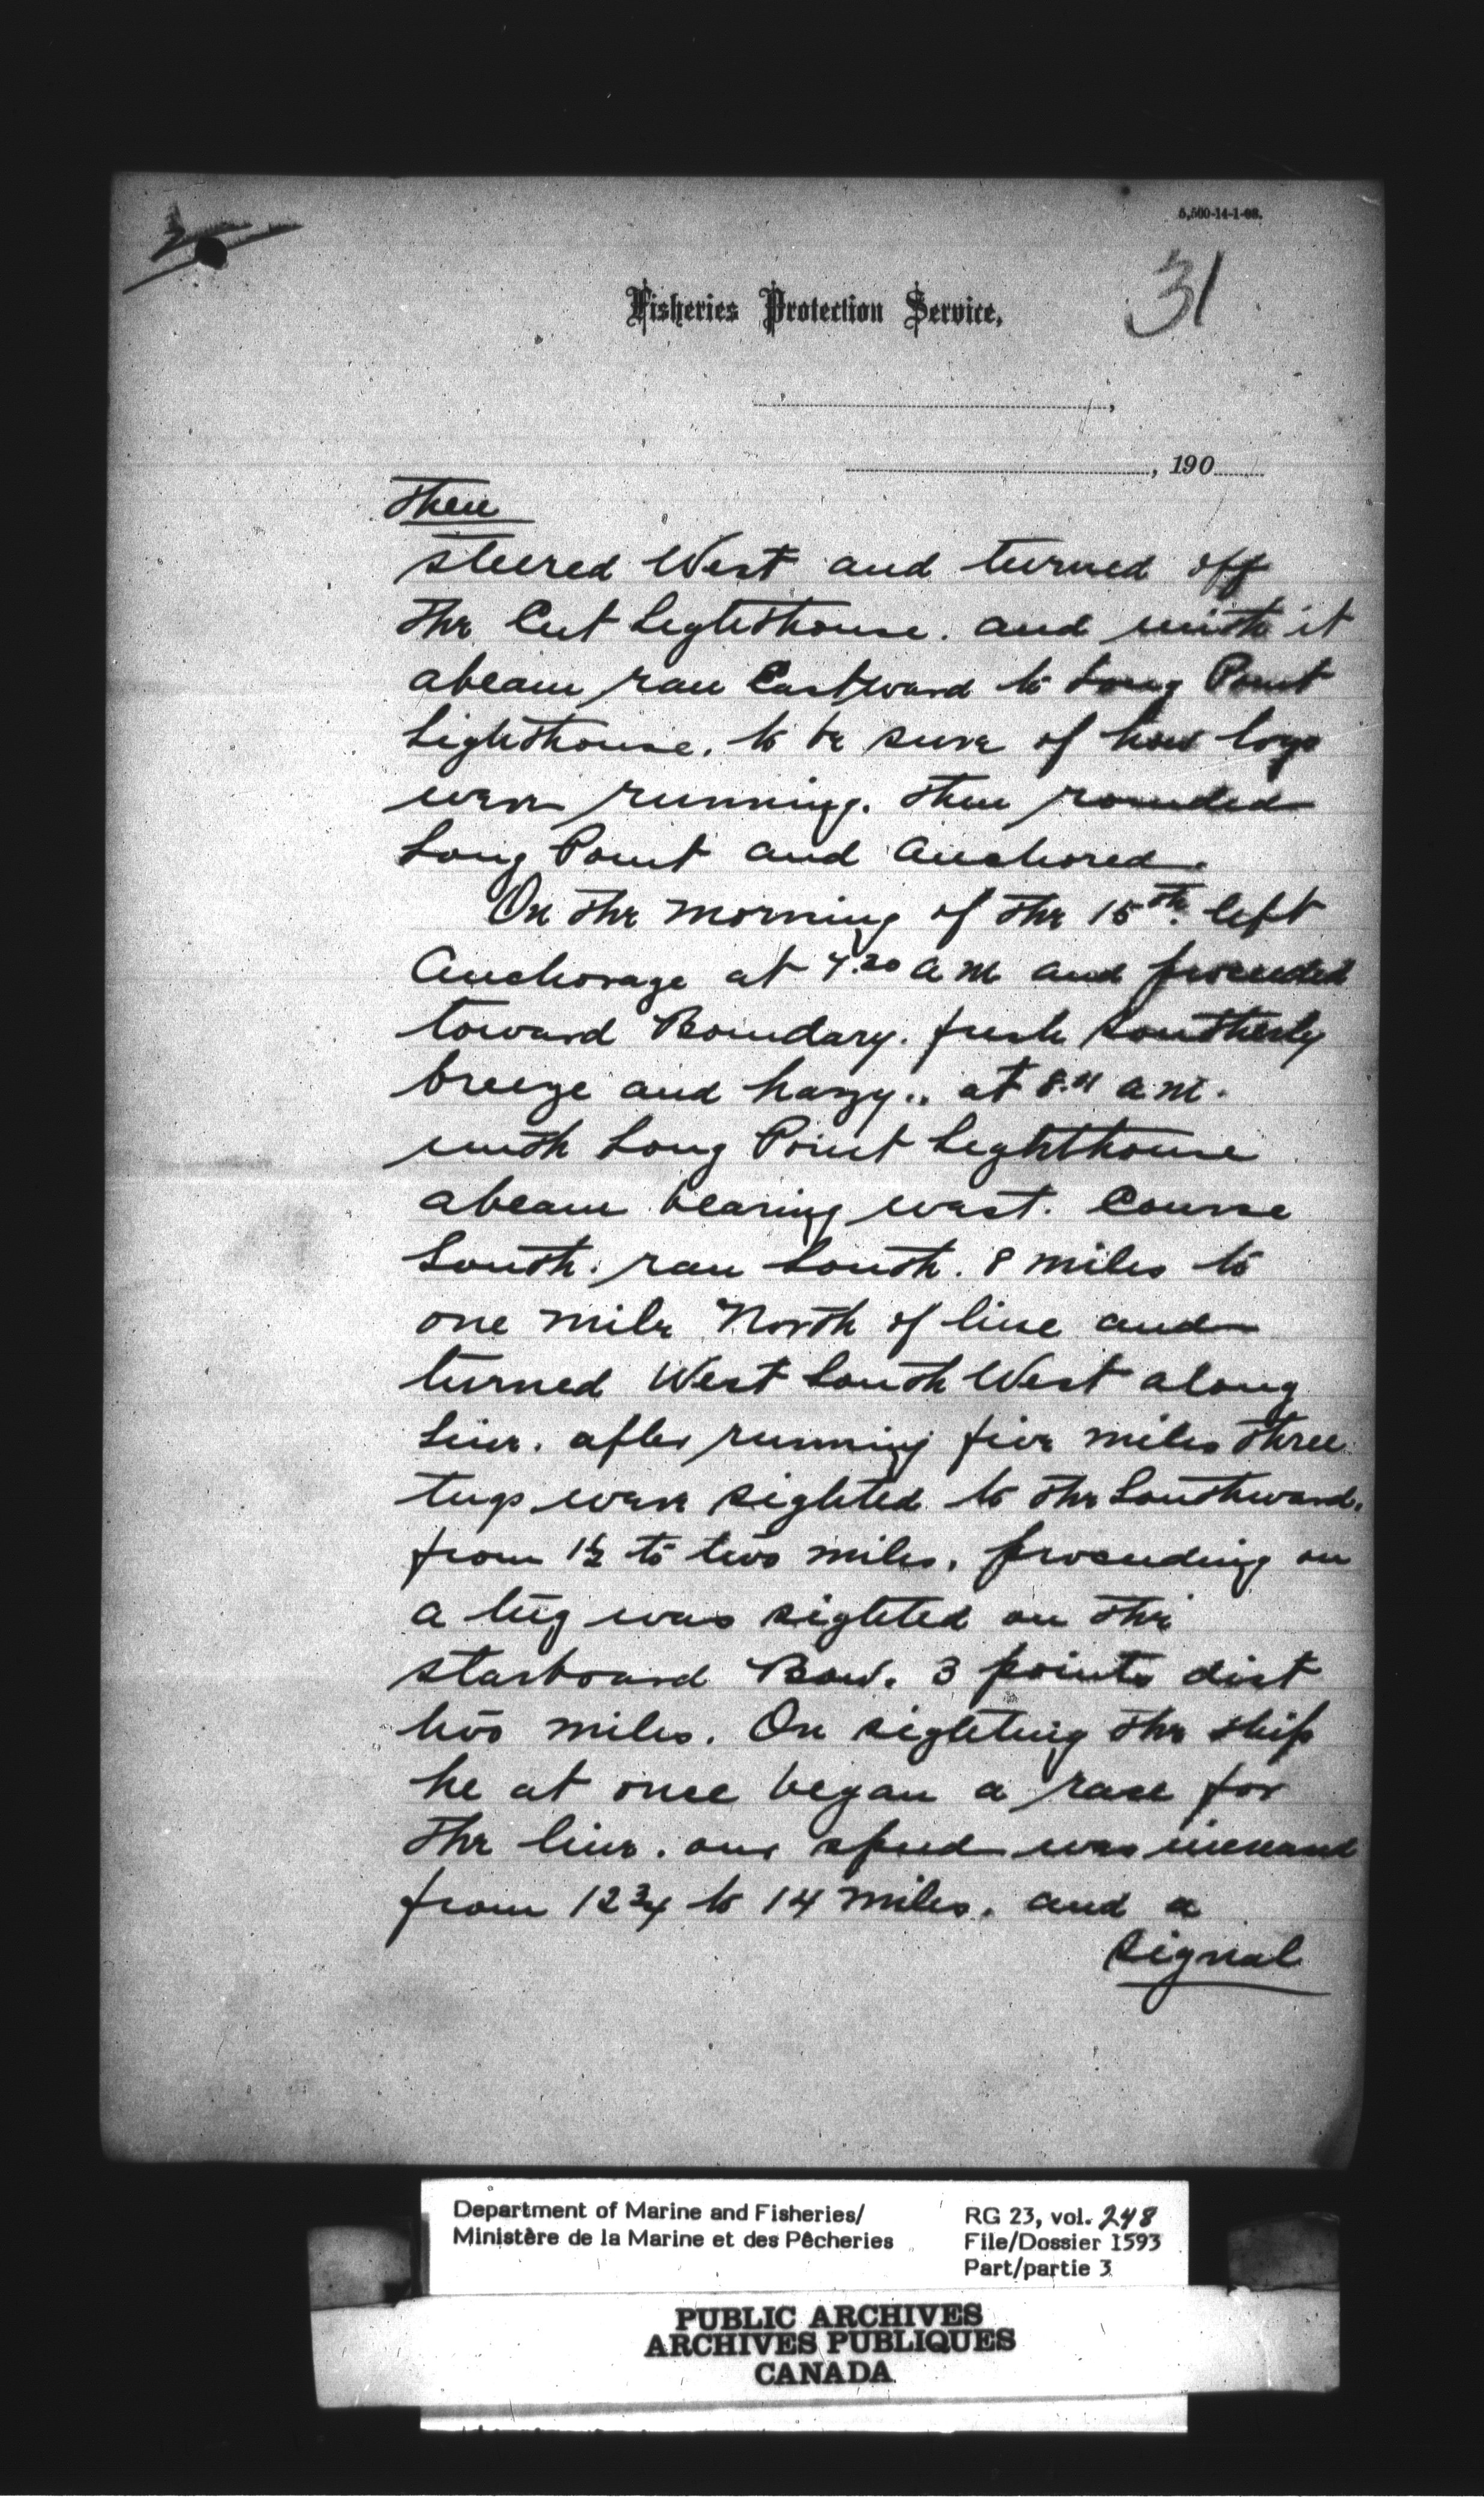 5,500-14-1-08.
31
Fisheries Protection Service,
, 190
Then
steered West and turned off
the Cut Lighthouse. and with it
abeam ran Eastward to Long Point
Lighthouse. to be sure of how logs
were running. Then rounded
Long Point and Anchored.
On the morning of the 15th. left
Anchorage at 7.20 a m and proceeded
toward Boundary. fresh Southerly
breeze and hazy.. at 8.11 a.m.
with Long Point Lighthouse
abeam bearing west. Course
South. ran South. 8 miles to
one mile North of line and
turned West South West along
Line. after running five miles three
tugs were sighted to the Southward.
from 1½ to two miles. proceeding on
a tug was sighted on the
starboard Bow. 3 points dist
two miles. On sighting the ship
he at once began a race for
the line. our speed was increased
from 12¾ to 14 miles. and a
signal
Department of Marine and Fisheries/
Ministère de la Marine et des Pêcheries
RG 23, vol. 248
File/Dossier 1593
Part/partie 3
PUBLIC ARCHIVES
ARCHIVES PUBLIQUES
CANADA